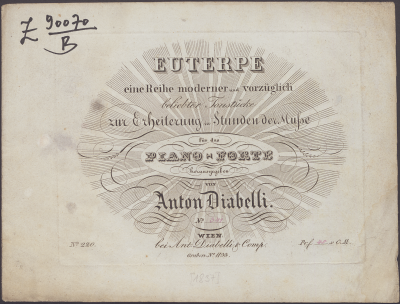 Z 90070
B
EUTERPE
eine Reihe moderner und vorzüglich
beliebter Tonstücke
zur Erheiterung in Stunden der Muße
für das
PIANO-FORTE
herausgegeben
von
Anton Diabelli.
Nº
WIEN,
bei Ant. Diabelli & Comp.
Graben Nº 1133.
Nº 220.
Pr. f. x C.M.